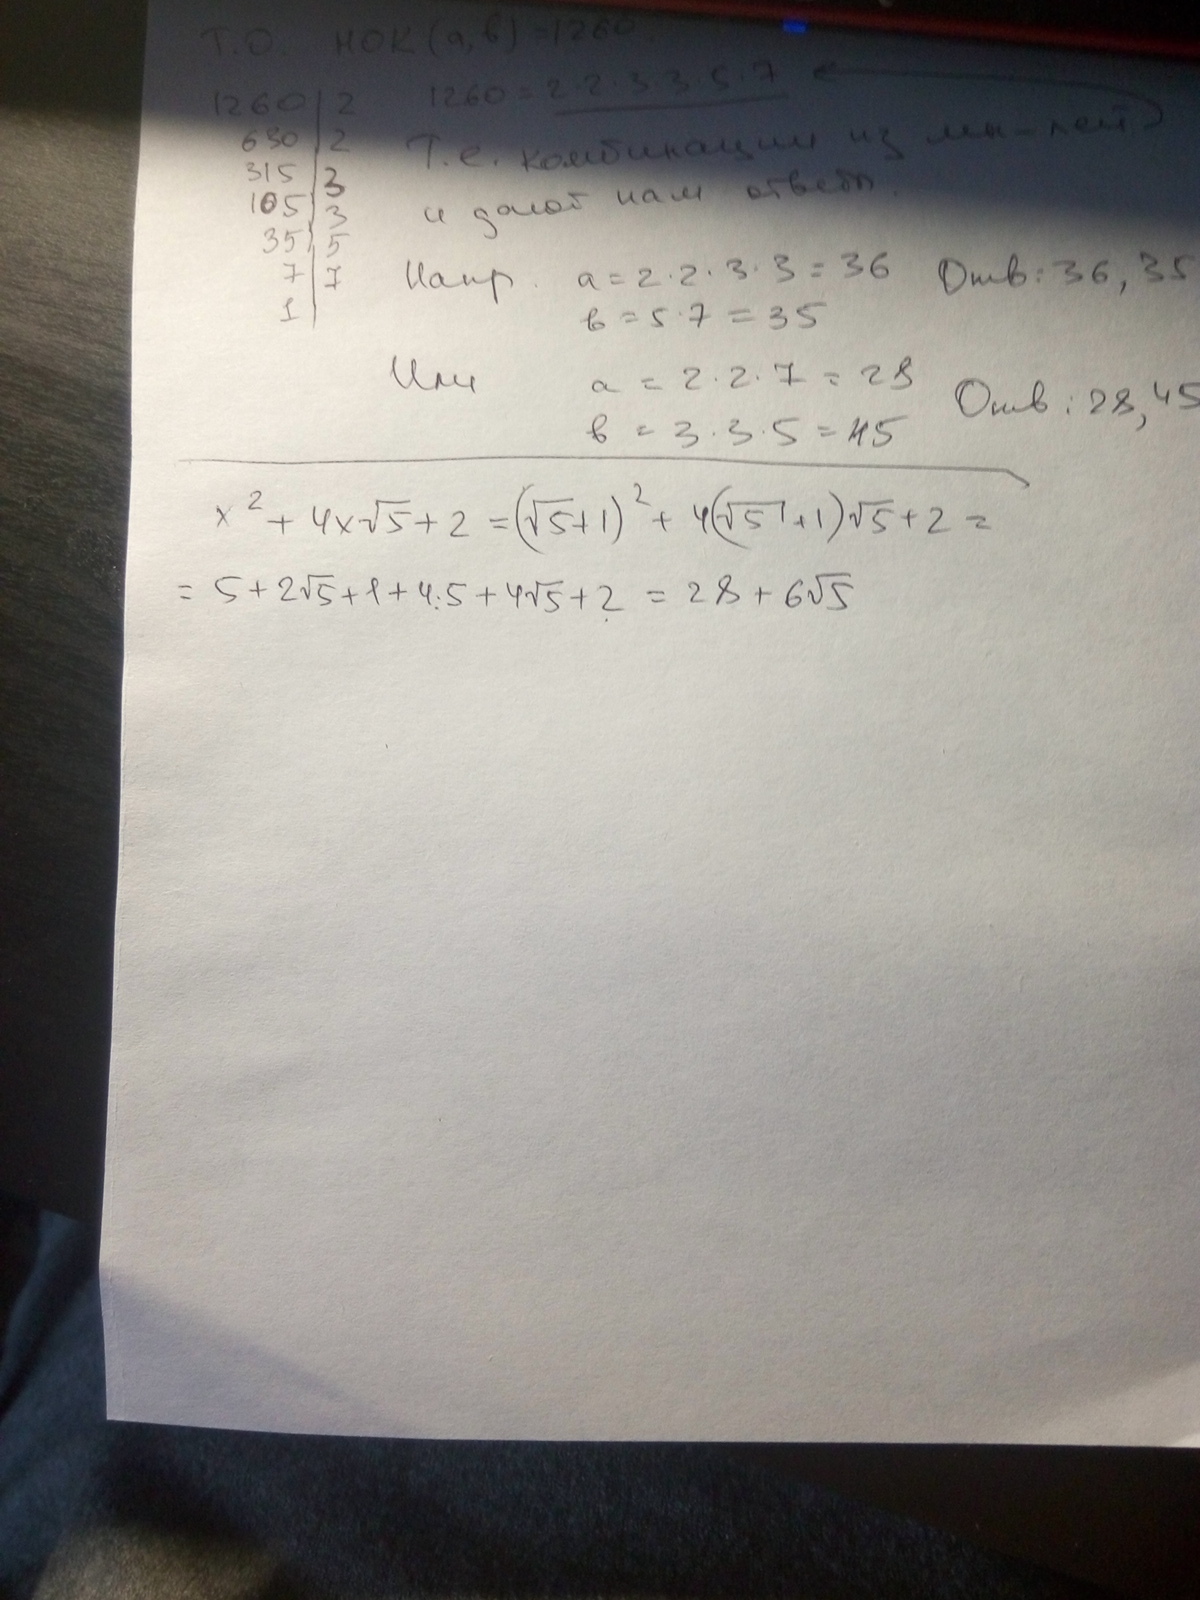 Т.О. НОК (а, в) = 1260.
1260 | 2
630 | 2
315 | 3
105 | 3
35 | 5
7 | 7
1 |
1260 = 2·2·3·3·5·7
Т.е. комбинации из мн-лей
и дают нам ответы.
Напр. а = 2·2·3·3 = 36 Отв: 36, 35
в = 5·7 = 35
Или а = 2·2·7 = 28 Отв: 28, 45
в = 3·3·5 = 45
x² + 4x√5 + 2 = (√5+1)² + 4(√5+1)√5 + 2 =
= 5 + 2√5 + 1 + 4·5 + 4√5 + 2 = 28 + 6√5